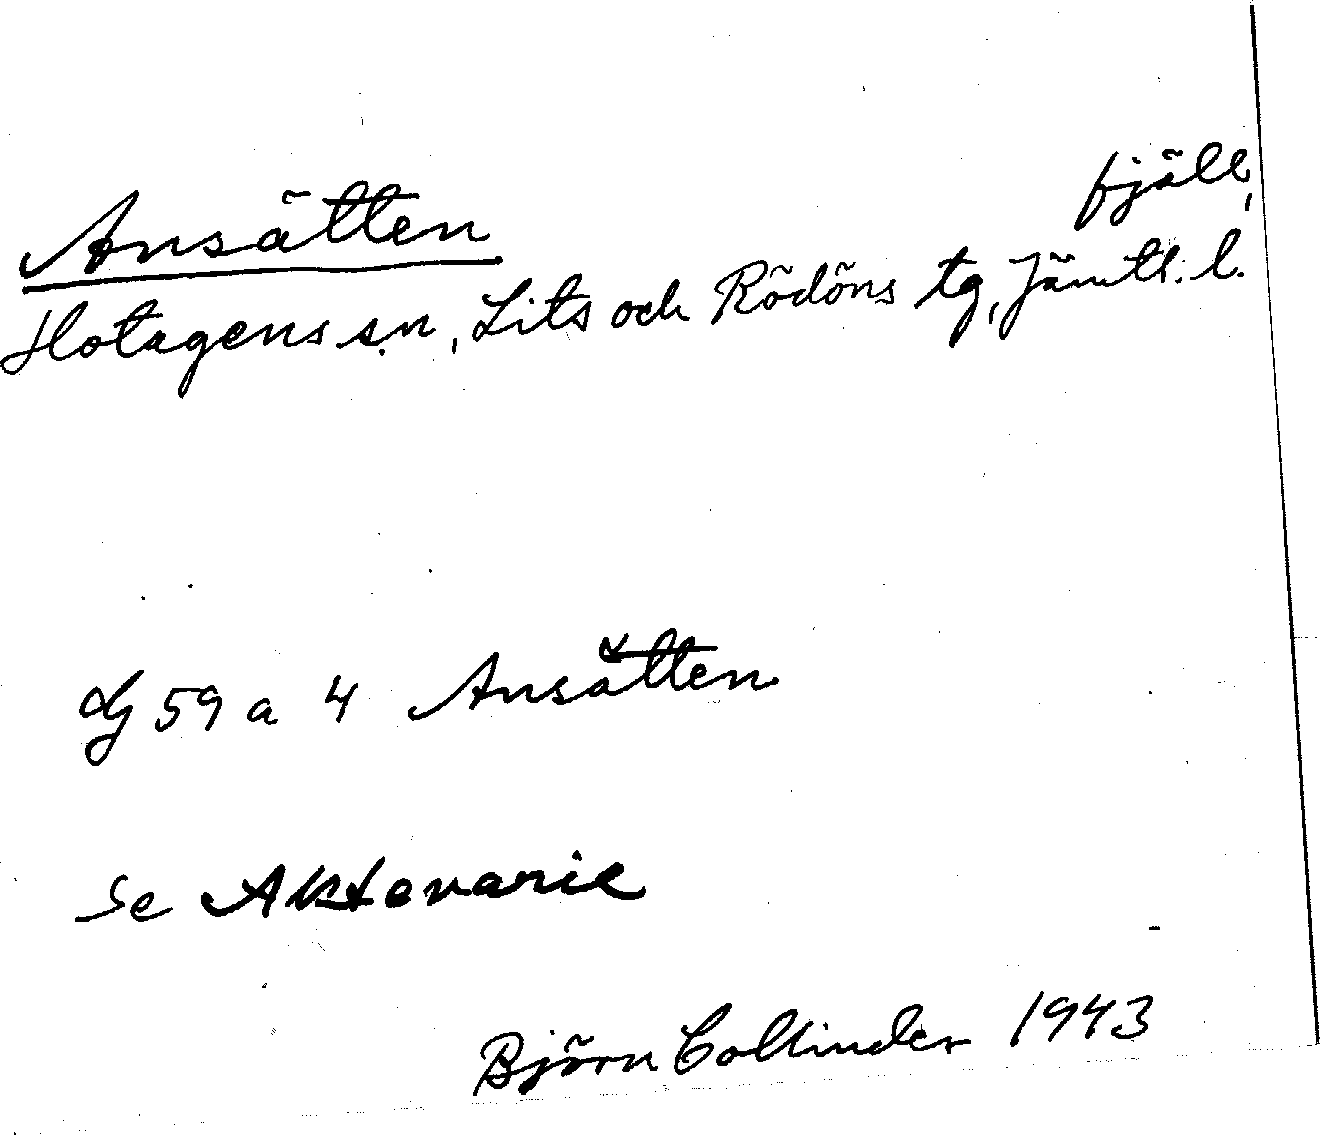 fjäll,
Ansätten
Hotagens sn, Lits och Rödöns tg, Jämtl. l.
59 a 4 Ansätten
Se Aktevarie
Björn Collinder 1943